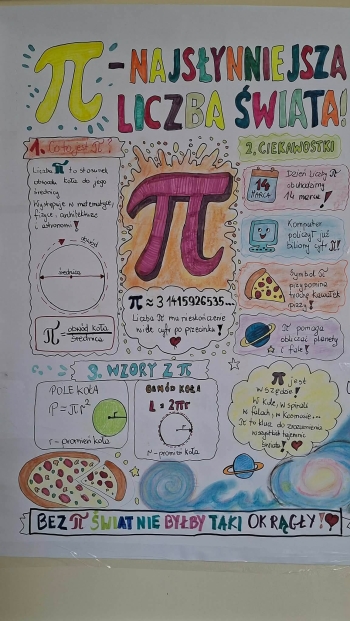 π - NAJSŁYNNIEJSZA
LICZBA ŚWIATA!
1. Co to jest π?
Liczba π to stosunek
obwodu koła do jego
średnicy.
Występuje w matematyce,
fizyce, architekturze
i astronomii!
obwód
średnica
π = obwód koła / średnica
π
π ≈ 3.1415926535...
Liczba π ma nieskończenie
wiele cyfr po przecinku!
2. CIEKAWOSTKI
14
MARCA
Dzień Liczby π
obchodzimy
14 marca!
Komputer
policzył już
biliony cyfr π!
Symbol π
przypomina
trochę kawałek
pizzy!
π pomaga
obliczać planety
i fale!
3. WZORY Z π
POLE KOŁA
P = πr²
r
r - promień koła
OBWÓD KOŁA
L = 2πr
r
r - promień koła
π jest
wszędzie!
W kole, w spirali
w falach, w kosmosie...
π to klucz do zrozumienia
wszystkich tajemnic
świata!
BEZ π ŚWIAT NIE BYŁBY TAKI OKRĄGŁY!